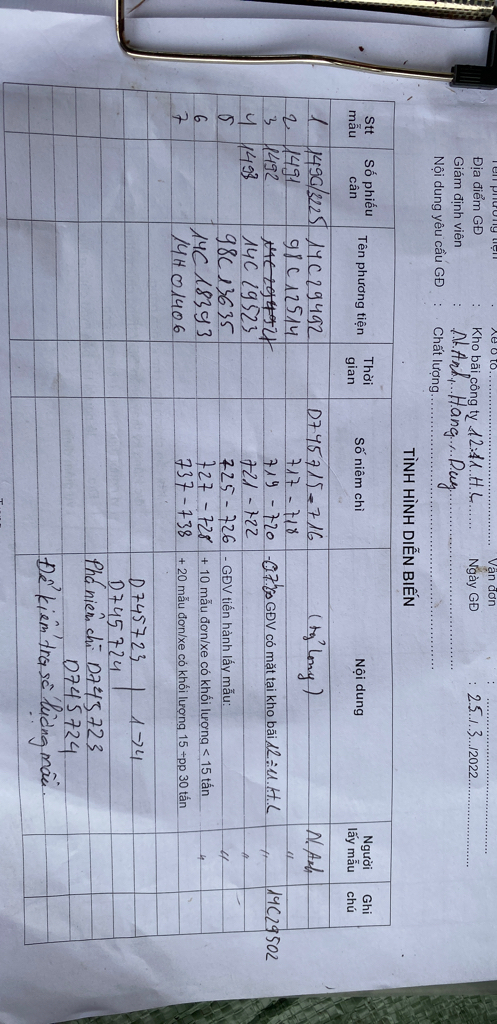 Tên phương tiện : Xe ô tô Vận đơn :
Địa điểm GĐ : Kho bãi công ty 12-11.H.L Ngày GĐ : 25/3/2022
Giám định viên : N.Anh, Hang, Duy
Nội dung yêu cầu GĐ : Chất lượng
TÌNH HÌNH DIỄN BIẾN
Stt mẫu Số phiếu cân Tên phương tiện Thời gian Số niêm chì Nội dung Người lấy mẫu Ghi chú
1 1490/3225 14C29492 D745715-716 N.Anh
2 1491 98C12514 717-718 "
3 1492 719-720 GĐV có mặt tại kho bãi 12-11.H.L " 14C29502
4 1493 14C29523 721-722 "
5 98C13635 725-726 - GĐV tiến hành lấy mẫu: "
6 14C18393 727-728 + 10 mẫu đơn/xe có khối lượng < 15 tấn "
7 14H01406 737-738 + 20 mẫu đơn/xe có khối lượng 15 +pp 30 tấn
D745723 | 1-24
D745724
Phá niêm chì D745723
D745724
Để kiểm tra số lượng mẫu